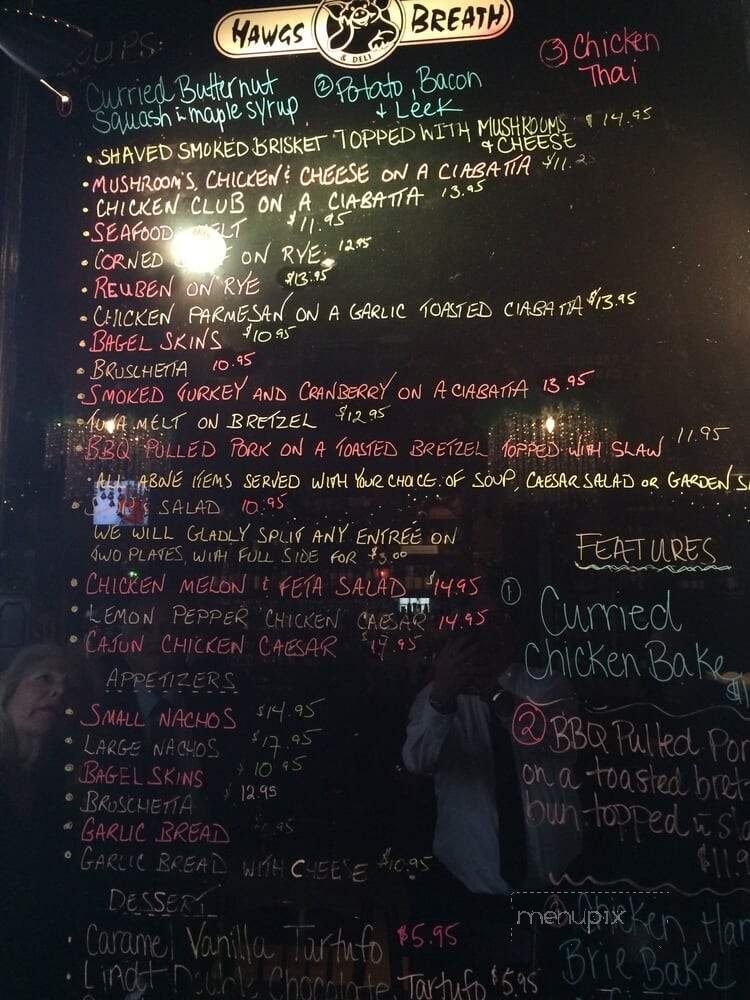 HAWGS BREATH
& DELI
SOUPS:
Curried Butternut
Squash & maple syrup
② Potato, Bacon
+ Leek
③ Chicken
Thai
• SHAVED SMOKED BRISKET TOPPED WITH MUSHROOMS $14.95
& CHEESE
• MUSHROOM'S, CHICKEN & CHEESE ON A CIABATTA
• CHICKEN CLUB ON A CIABATTA 13.95
• SEAFOOD MELT $11.95
• CORNED ON RYE 12.95
• REUBEN ON RYE $13.95
• CHICKEN PARMESAN ON A GARLIC TOASTED CIABATTA $13.95
• BAGEL SKINS $10.95
• BRUSCHETTA 10.95
• SMOKED TURKEY AND CRANBERRY ON A CIABATTA 13.95
• TUNA MELT ON BRETZEL $12.95
• BBQ PULLED PORK ON A TOASTED BRETZEL TOPPED WITH SLAW 11.95
• ALL ABOVE ITEMS SERVED WITH YOUR CHOICE OF SOUP, CAESAR SALAD OR GARDEN
• SALAD 10.95
WE WILL GLADLY SPLIT ANY ENTREE ON
TWO PLATES, WITH FULL SIDE FOR $3.00
• CHICKEN MELON & FETA SALAD $14.95
• LEMON PEPPER CHICKEN CAESAR 14.95
• CAJUN CHICKEN CAESAR
APPETIZERS
• SMALL NACHOS $14.95
• LARGE NACHOS $17.95
• BAGEL SKINS $10.95
• BRUSCHETTA 12.95
• GARLIC BREAD
• GARLIC BREAD WITH CHEESE $10.95
DESSERT
• Caramel Vanilla Tartufo $5.95
• Lindt Double Chocolate Tartufo $5.95
FEATURES
① Curried
Chicken Bake
② BBQ Pulled Por
on a toasted bret
bun topped
$11.9
③ Chicken, Ham
Brie Bake
menupix